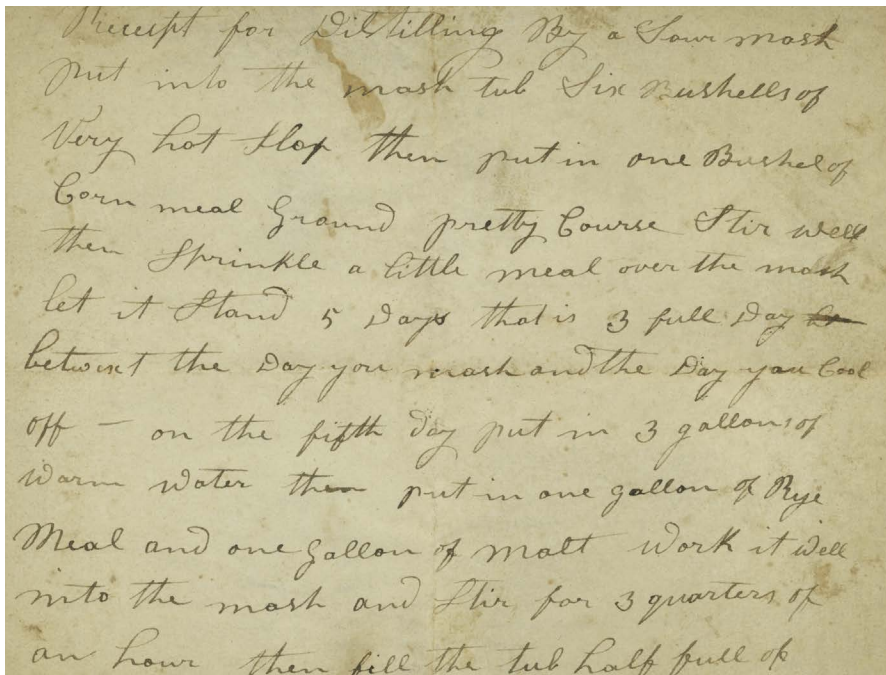 Receipt for Distilling By a Sour mash
put into the mash tub Six Bushells of
Very hot Slop then put in one Bushel of
Corn meal Ground pretty Course Stir well
then Sprinkle a little meal over the mash
let it Stand 5 Days that is 3 full Day be
betwixt the Day you mash and the Day you Cool
off – on the fifth day put in 3 gallons of
warm water then put in one gallon of Rye
Meal and one gallon of malt work it well
into the mash and Stir for 3 quarters of
an hour then fill the tub half full of